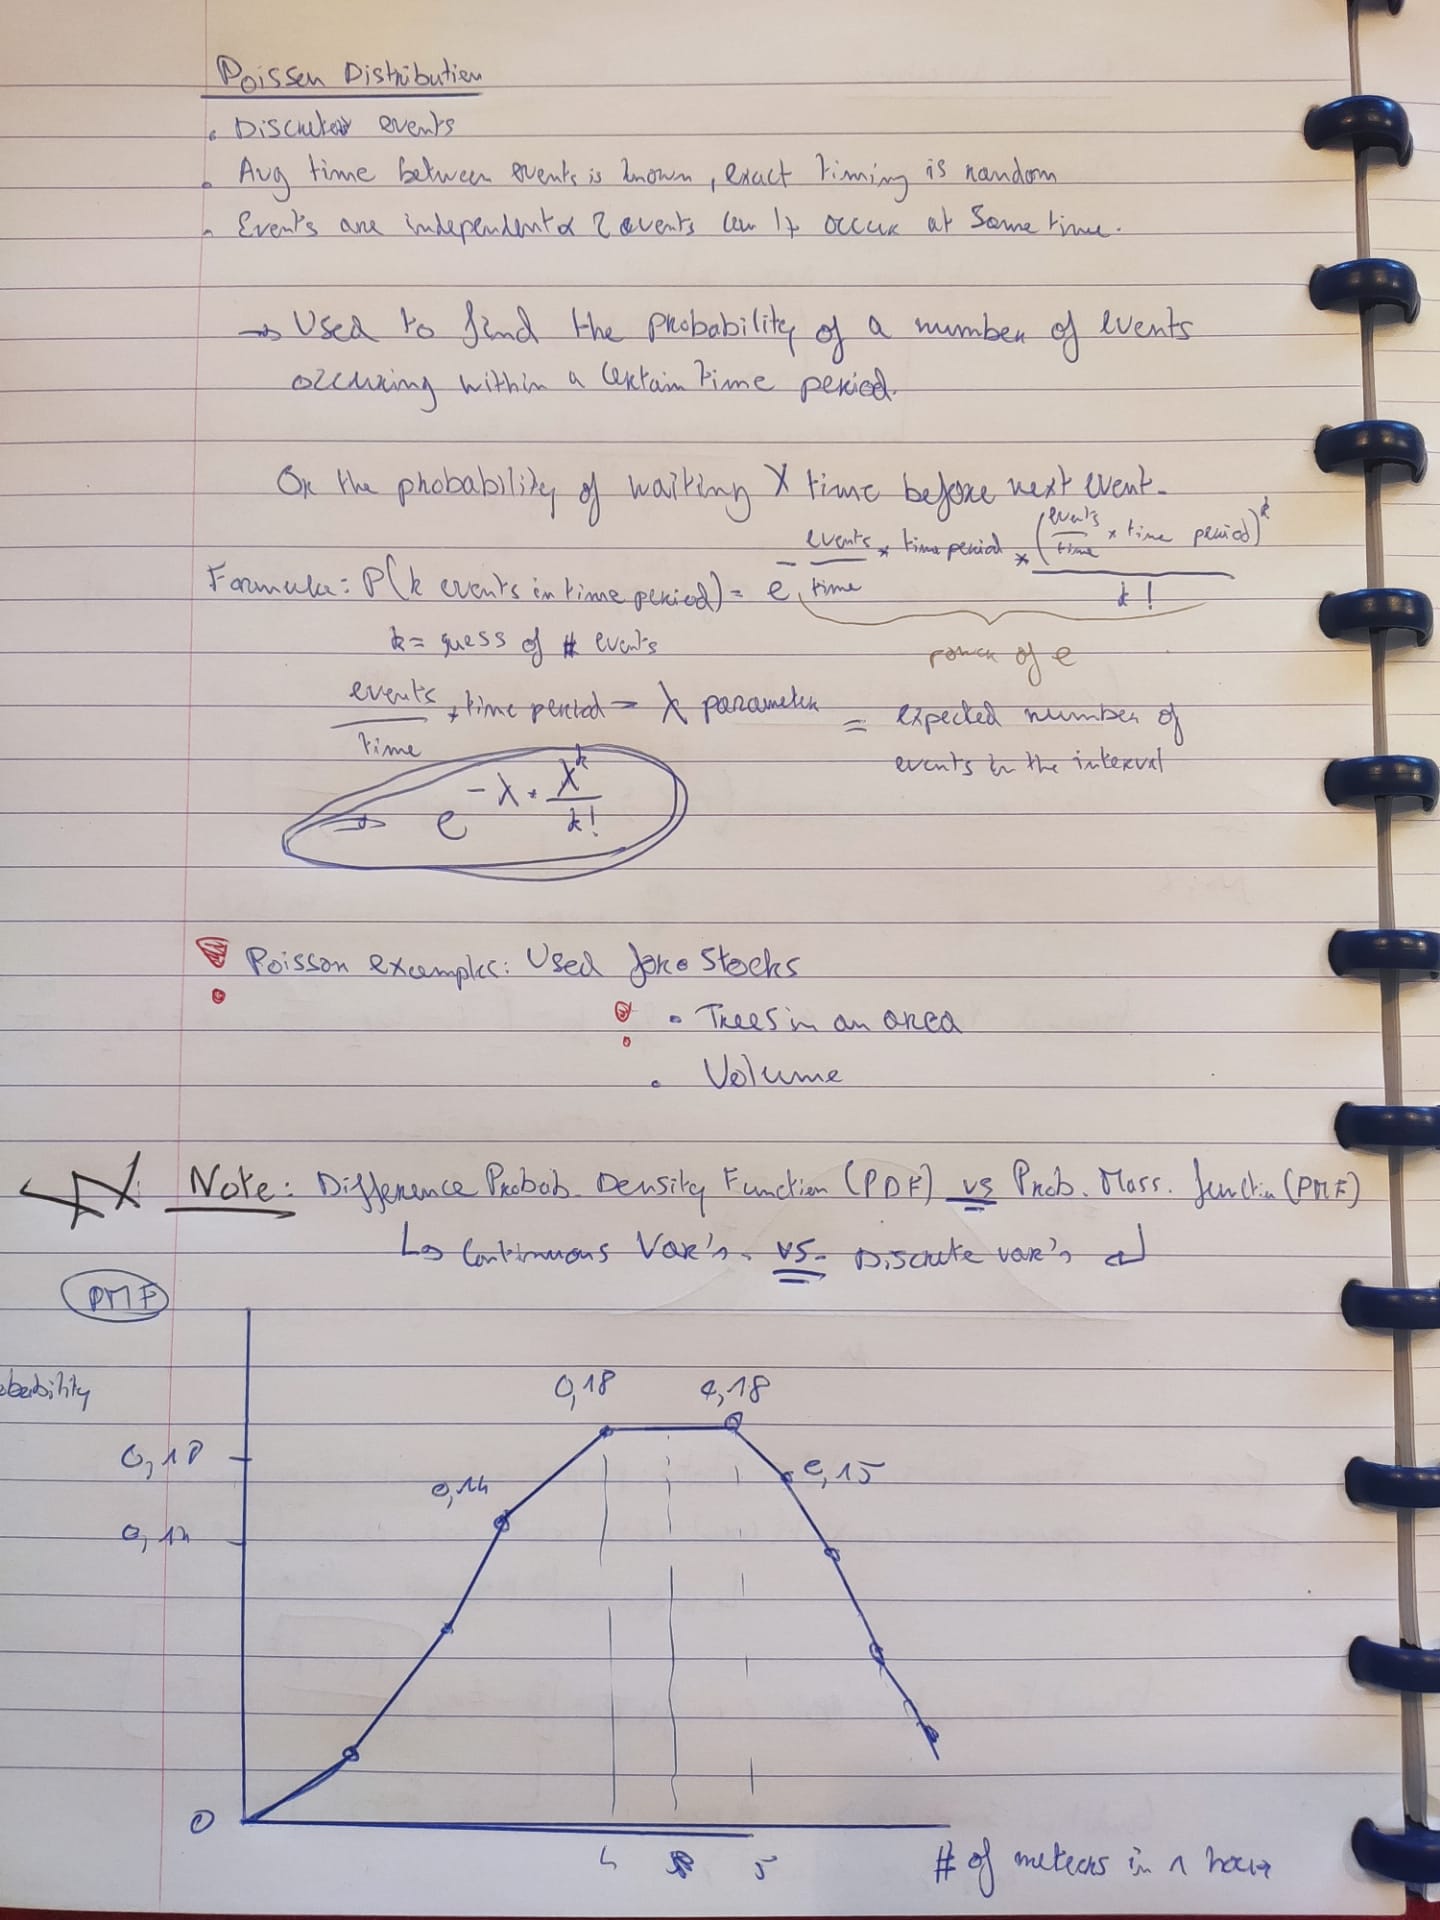 Poisson Distribution
• Discrete events
• Avg time between events is known, exact timing is random
• Events are independent & 2 events can't occur at same time.
→ Used to find the probability of a number of events
occuring within a certain time period.
Or the probability of waiting X time before next event.
Formula: P(k events in time period) = e^(- events/time * time period) * (events/time * time period)^k / k!
k = guess of # events
power of e
events/time * time period = λ parameter = expected number of
events in the interval
→ e^-λ * λ^k / k!
! Poisson examples: Used for • Stocks
! • Trees in an area
• Volume
Note: Difference Probab. Density Function (PDF) vs Prob. Mass. function (PMF)
↳ Continuous Var's. vs. Discrete var's ↲
PMF
0,18 0,18
obability
0,18
0,14
0,15
0,1
0
4 5
# of meteors in 1 hour